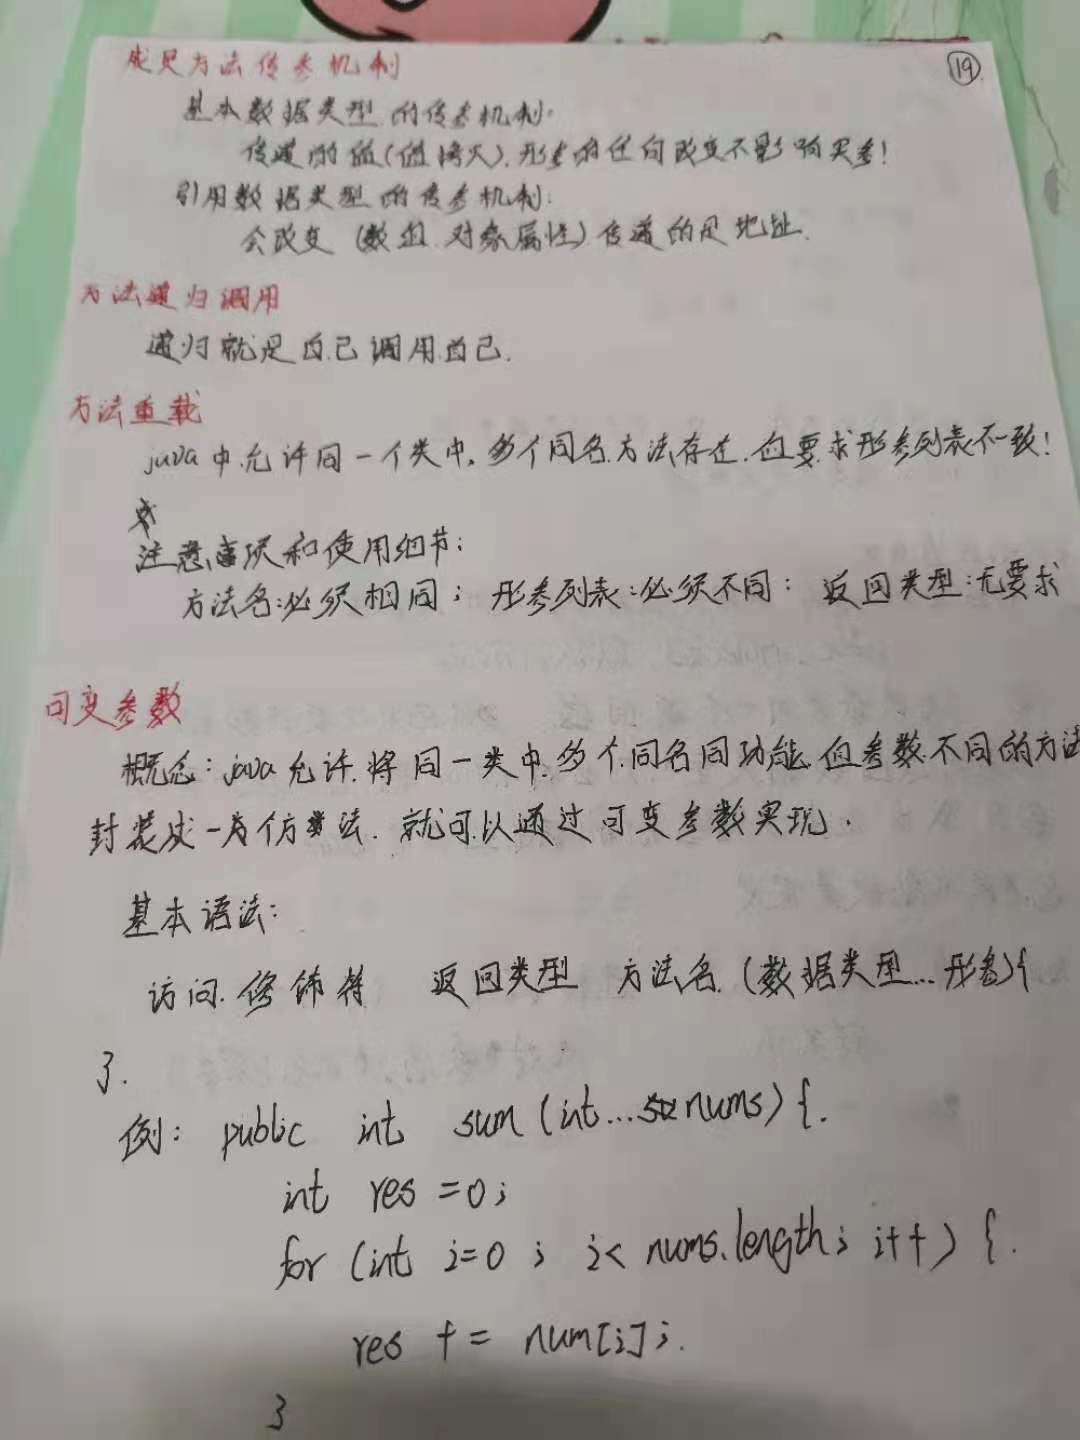 成员方法传参机制
19
基本数据类型的传参机制:
传递的值(值拷贝).形参的任何改变不影响实参!
引用数据类型的传参机制:
会改变(数组.对象属性)传递的是地址.
方法递归调用
递归就是自己调用自己.
方法重载
java中允许同一个类中,多个同名方法存在.但要求形参列表不一致!
注意事项和使用细节:
方法名:必须相同; 形参列表:必须不同: 返回类型:无要求
可变参数
概念:java允许.将同一类中.多个同名同功能.但参数不同的方法
封装成一个方法.就可以通过可变参数实现.
基本语法:
访问.修饰符 返回类型 方法名.(数据类型...形参){
}.
例: public int sum (int...nums){.
int res =0;
for (int i=0 ; i< nums.length; i++) {.
res += num[i];.
}